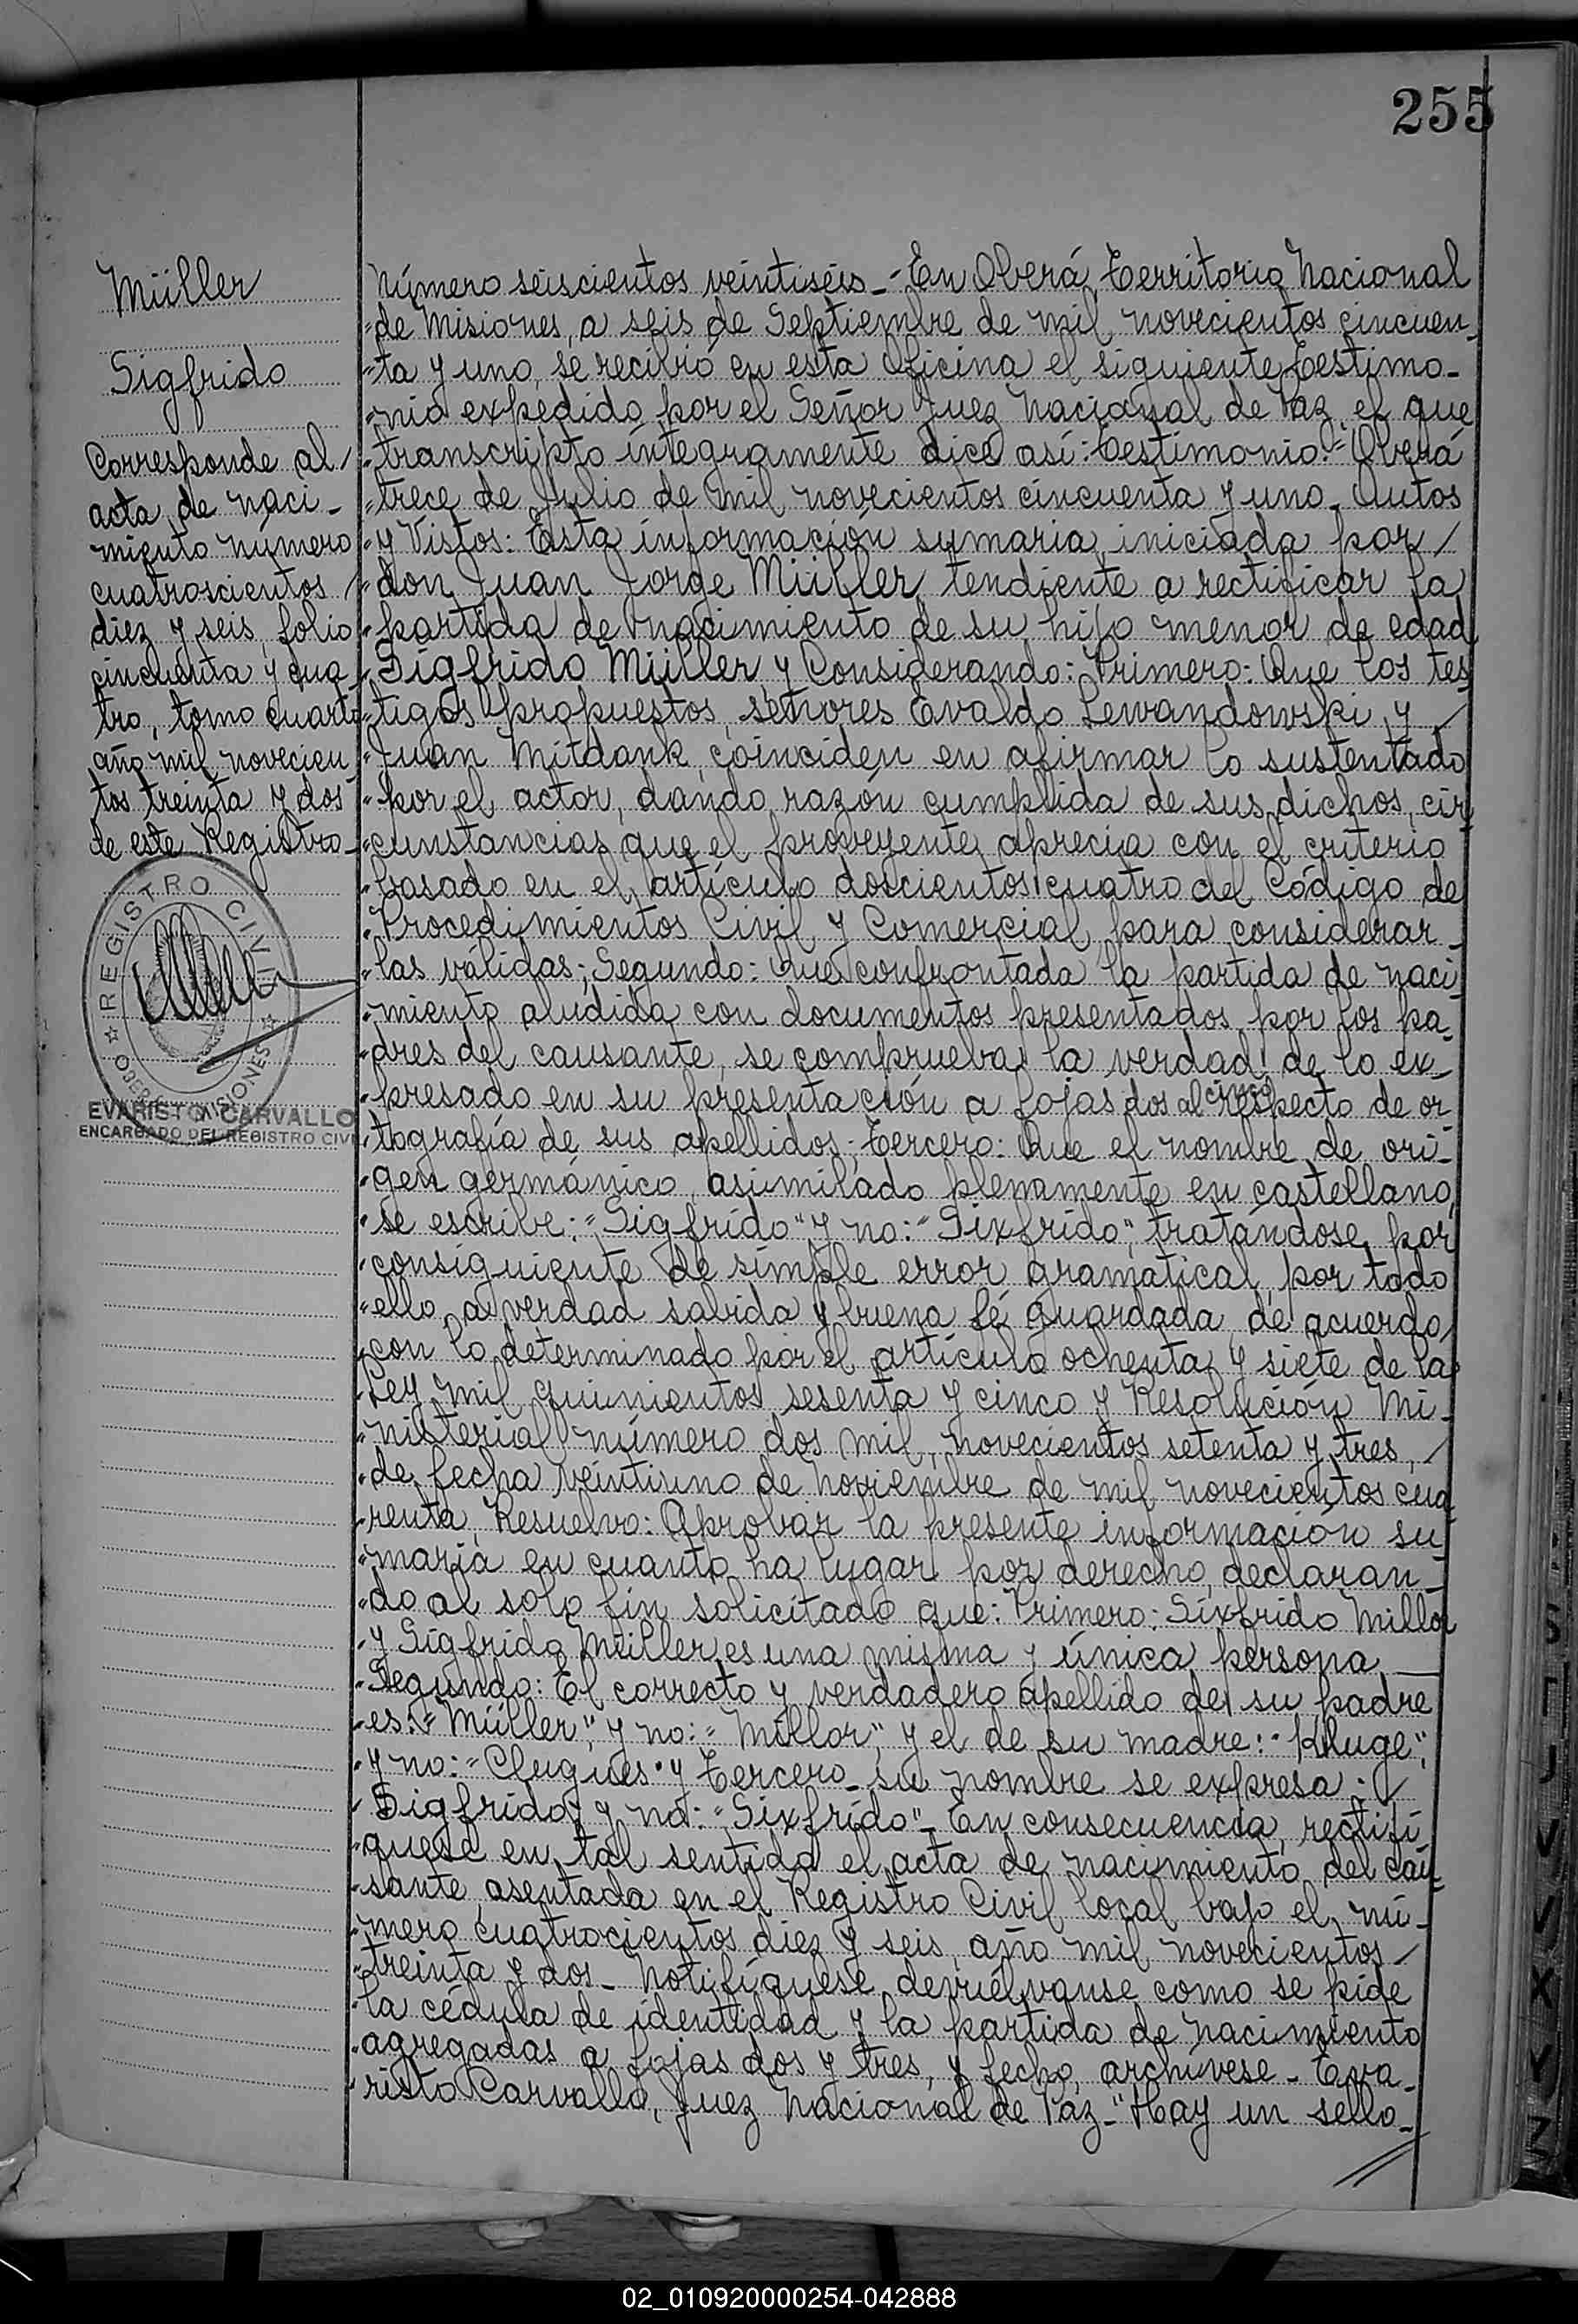 255
Müller
Sigfrido
Corresponde al /
acta de naci-
miento número
cuatroscientos /
diez y seis, folio
cincuenta y cua-
tro, tomo cuarto
año mil novecien-
tos treinta y dos
de este Registro-
REGISTRO CIVIL
OBERÁ MISIONES
EVARISTO CARVALLO
ENCARGADO DEL REGISTRO CIVIL
Número seiscientos veintiséis_-En Oberá, Territorio Nacional
"de Misiones, a seis de Septiembre de mil novecientos cincuen-
"ta y uno, se recibió en esta Oficina el siguiente Testimo-
"nio expedido por el Señor Juez Nacional de Paz el que
"transcripto íntegramente dice así: Testimonio:-"Oberá
"trece de Julio de mil novecientos cincuenta y uno_ Autos
"y Vistos: Esta información sumaria, iniciada por /
"don Juan Jorge Müller, tendiente a rectificar la
"partida de nacimiento de su hijo menor de edad
"Sigfrido Müller, y Considerando: Primero: Que los tes
"tigos propuestos, señores Evaldo Lewandowski y /
"Juan Mitdank, coinciden en afirmar lo sustentado
"por el actor, dando razón cumplida de sus dichos, cir
"cunstancias que el proveyente aprecia con el criterio
"basado en el artículo doscientos cuatro del Código de
"Procedimientos Civil y Comercial para considerar_
"las válidas; Segundo: Que confrontada la partida de naci
"miento aludida con documentos presentados por los pa-
"dres del causante, se comprueba la verdad de lo ex-
"presado en su presentación a fojas dos al cinco respecto de or
"tografía de sus apellidos; Tercero: Que el nombre de ori-
"gen germánico, asimilado plenamente en castellano,
"se escribe: "Sigfrido" y no: "Sixfrido", tratándose por
"consiguiente de simple error gramatical, por todo
"ello, a verdad sabida y buena fé guardada, de acuerdo
"con lo determinado por el artículo ochenta y siete de la
"Ley mil quinientos sesenta y cinco y Resolución Mi-
"nisterial número dos mil, novecientos setenta y tres, /
"de fecha veintiuno de Noviembre de mil novecientos cua
"renta, Resuelvo: Aprobar la presente información su-
"maria en cuanto ha lugar por derecho, declaran-
"do al solo fin solicitado que: Primero: Sixfrido Millor
"y Sigfrido Müller es una misma y única persona,
"Segundo: El correcto y verdadero apellido de su padre
"es: "Müller", y no: "Millor", y el de su madre: "Kluge",
"y no: "Clugues" y Tercero_ su nombre se expresa: /
"Sigfrido, y no: "Sixfrido"_ En consecuencia, rectifí-
"quese en tal sentido el acta de nacimiento del cau-
"sante, asentada en el Registro Civil local bajo el nú-
"mero cuatrocientos diez y seis, año mil novecientos /
"treinta y dos_ Notifíquese, devuélvanse como se pide
"la cédula de identidad y la partida de nacimiento
"agregadas a fojas dos y tres, y fecho, archívese_ Eva-
"risto Carvallo, Juez Nacional de Paz-" Hay un sello_
02_010920000254-042888